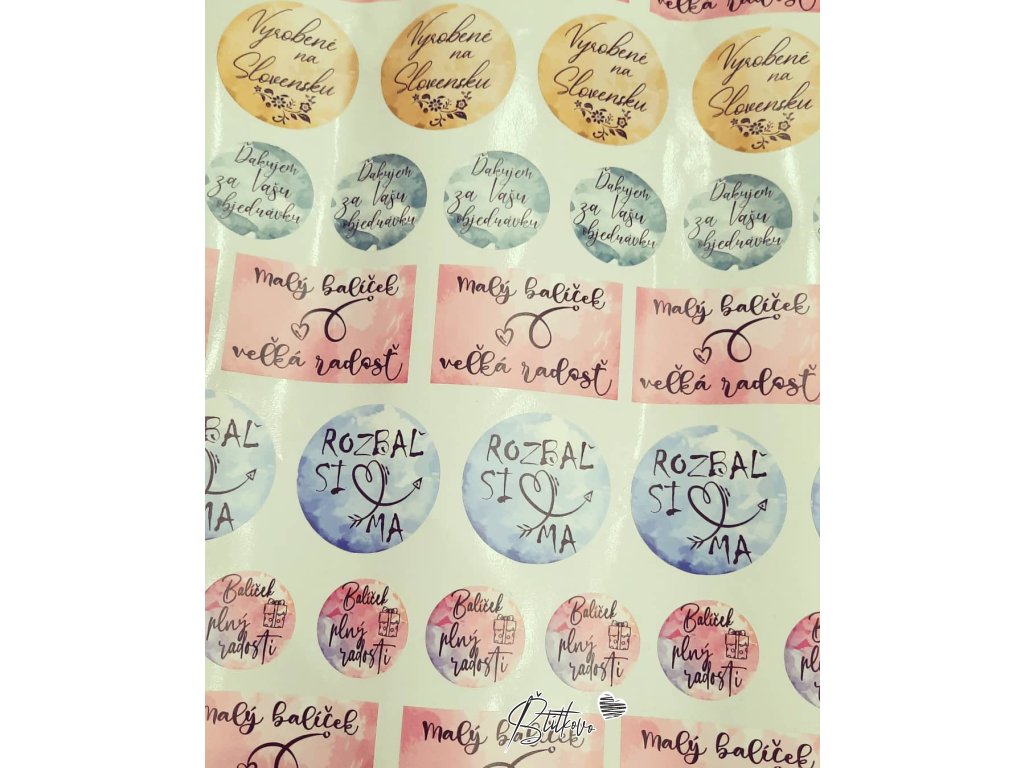 Vyrobené
na
Slovensku
Vyrobené
na
Slovensku
Vyrobené
na
Slovensku
Vyrobené
na
Slovensku
Ďakujem
za Vašu
objednávku
Ďakujem
za Vašu
objednávku
Ďakujem
za Vašu
objednávku
Ďakujem
za Vašu
objednávku
Ďakujem
za Vašu
objednávku
malý balíček
veľká radosť
malý balíček
veľká radosť
malý balíček
veľká radosť
ZBAĽ
MA
ROZBAĽ
SI
MA
ROZBAĽ
SI
MA
ROZBAĽ
SI
MA
Balíček
plný
radosti
Balíček
plný
radosti
Balíček
plný
radosti
Balíček
plný
radosti
Balíček
plný
radosti
malý balíček
malý balíček
malý balíček